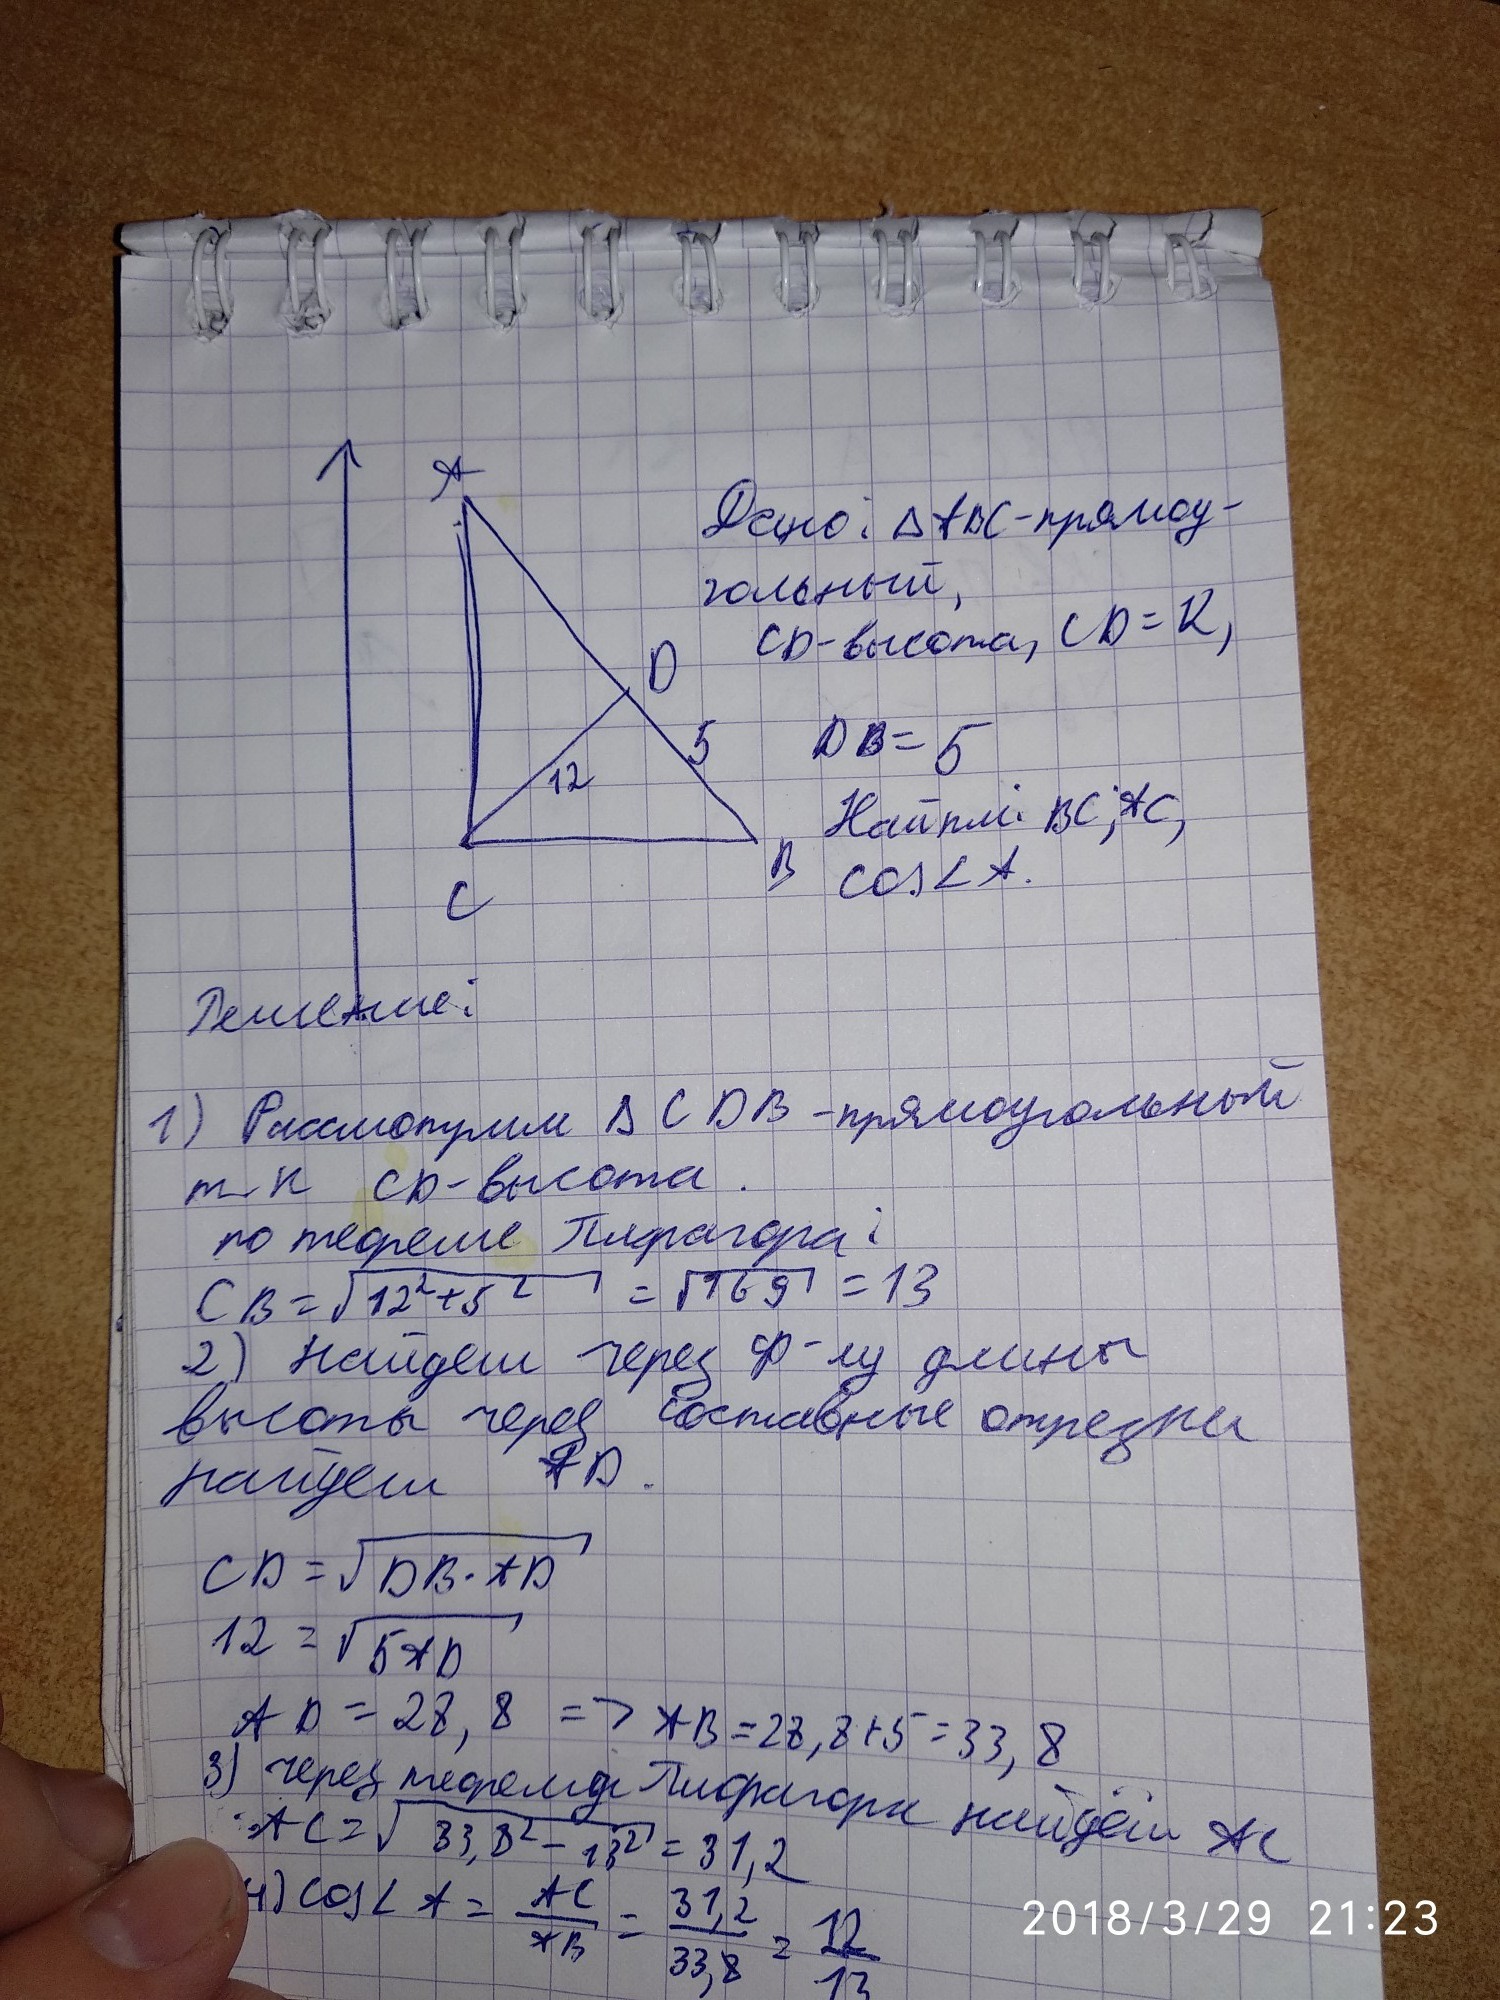 A
D
5
12
C
B
Дано: ΔABC-прямоу-
гольный,
CD-высота, CD=12,
DB=5
Найти: BC; AC,
cos∠A.
Решение:
1) Рассмотрим Δ CDB -прямоугольный
т.к CD-высота.
по теореме Пифагора:
CB=√12²+5² = √169 = 13
2) Найдем через ф-лу длины
высоты через составные отрезки
найдем AD.
CD=√DB·AD
12 = √5AD
AD = 28,8 => AB=28,8+5=33,8
3) через теорему Пифагора найдём AC
AC=√33,8²-13² = 31,2
4) cos∠A = AC/AB = 31,2/33,8 = 12/13
2018/3/29 21:23